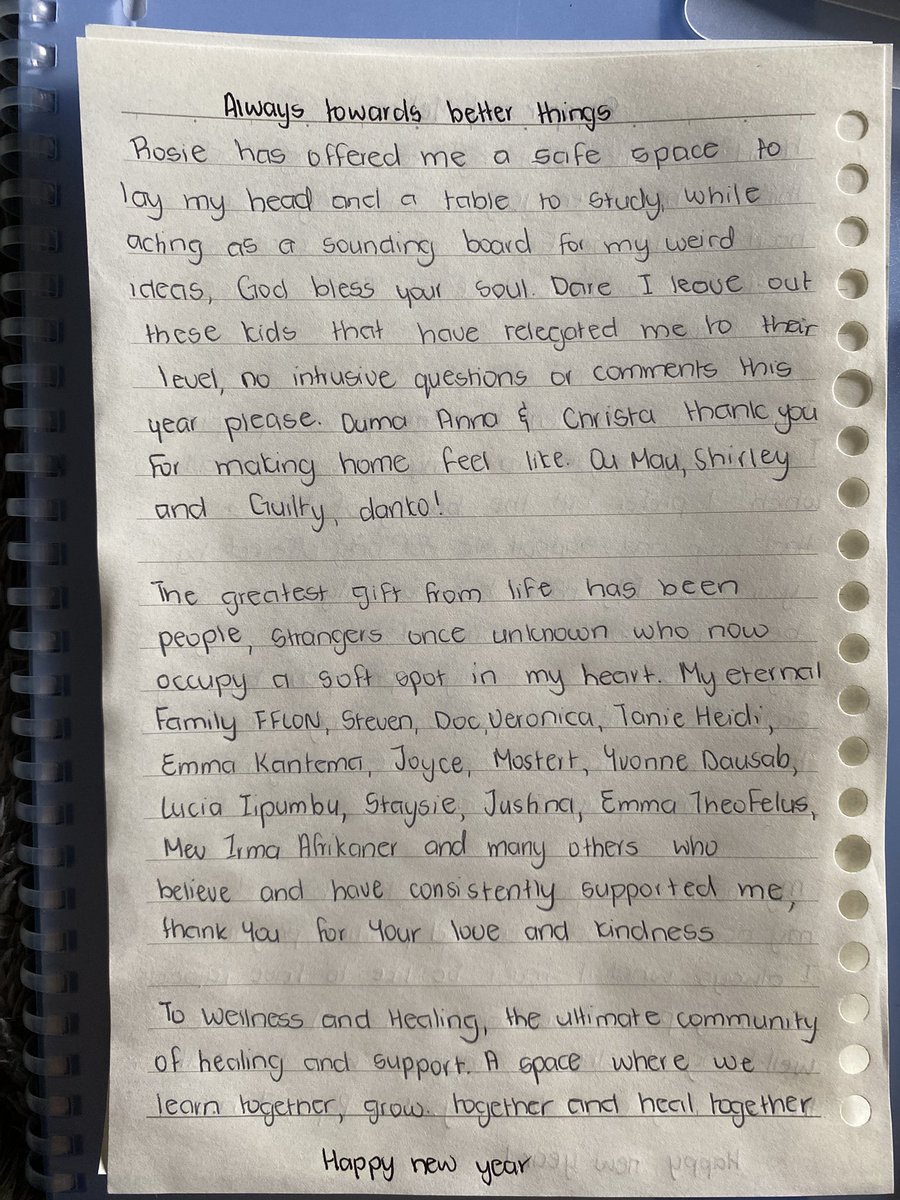 Always towards better things
Rosie has offered me a safe space to
lay my head and a table to study, while
acting as a sounding board for my weird
ideas, God bless your soul. Dare I leave out
these kids that have relegated me to their
level, no intrusive questions or comments this
year please. Ouma Anna & Christa thank you
for making home feel like. Ou Mau, Shirley
and Guilty, danko!
The greatest gift from life has been
people, strangers once unknown who now
occupy a soft spot in my heart. My eternal
Family FFLON, Steven, Doc, Veronica, Tanie Heidi,
Emma Kantema, Joyce, Mostert, Yvonne Dausab,
Lucia Iipumbu, Staysie, Jushna, Emma Theofelus,
Mev Irma Afrikaner and many others who
believe and have consistently supported me,
thank you for your love and kindness
To Wellness and Healing, the ultimate community
of healing and support. A space where we
learn together, grow together and heal together
Happy new year